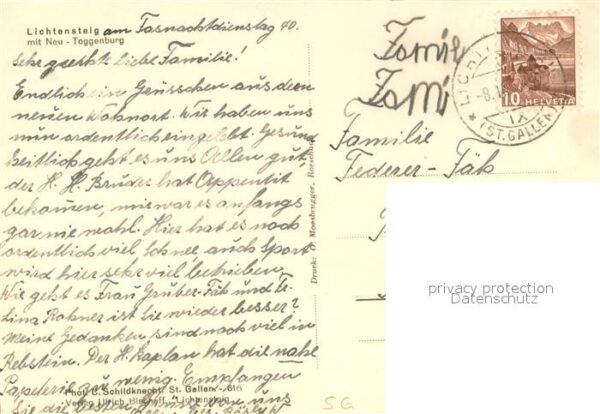 Lichtensteig am Fasnachtdienstag 40.
mit Neu - Toggenburg
Sehr geehrte liebe Familie!
Endlich ein Grüsschen aus dem
neuen Wohnort. Wir haben uns
nun ordentlich eingelebt. Gesund
heitlich geht es uns Allen gut,
der H. H. Bruder hat Appentit
bekomen, mir war es anfangs
gar nie wohl. Hier hat es noch
ordentlich viel Schnee, auch Sport
wird hier sehr viel betrieben,
Wie geht es Frau Gruber-Fäh und Fr.
Lina Rohner ist Sie wieder besser?
Meine Gedanken sind noch viel in
Rebstein. Der H. Kaplan hat die nahe
Papeterie zu wenig. Empfangen
Phot. C. Schildknecht, St. Gallen - 616
Sie die besten von uns
Verlag Ulrich Lichtensteig
Druck: Moosbrugger, Rorschach
Familie
Fami
Familie
Federer - Fäh
10 HELVETIA
LICHT
-8.I
IX
(ST. GALLEN)
privacy protection
Datenschutz
SG